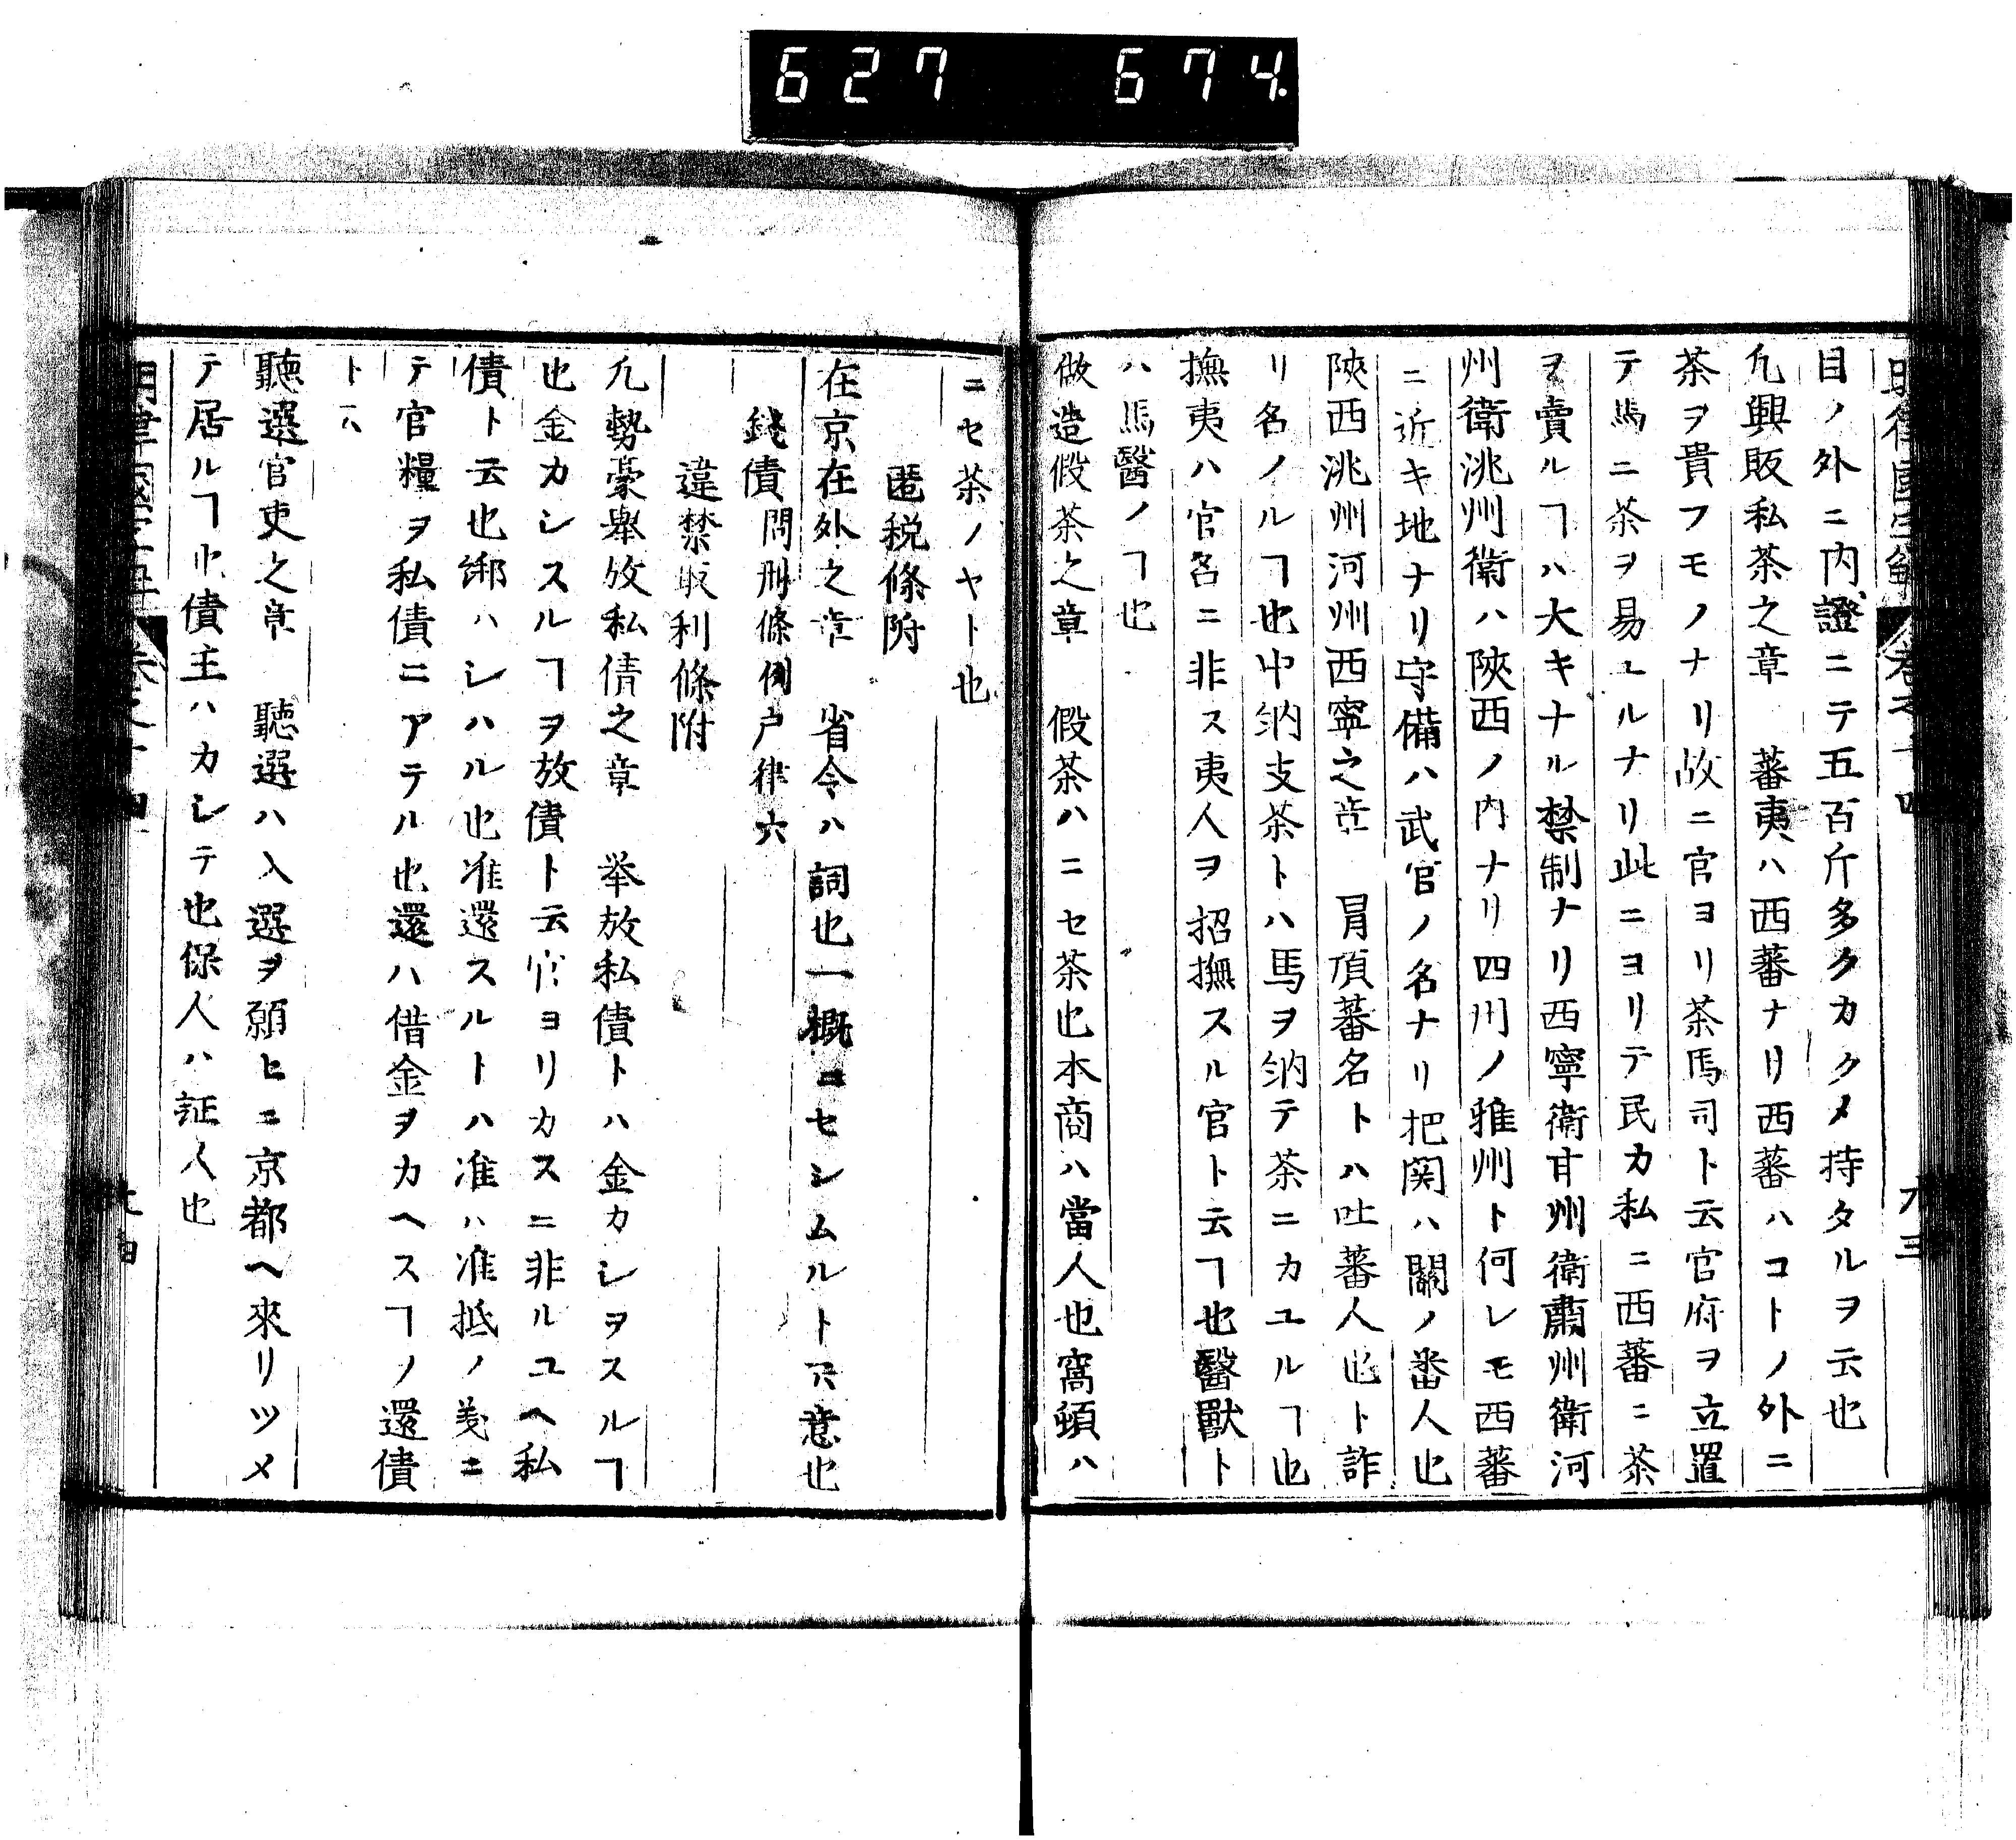 627 674.
目ノ外ニ内證ニテ五百斤多クカクメ持タルヲ云也
凢興販私茶之章　蕃夷ハ西蕃ナリ西蕃ハコトノ外ニ
茶ヲ貴フモノナリ故ニ官ヨリ茶馬司ト云官府ヲ立置
テ馬ニ茶ヲ易ユルナリ此ニヨリテ民カ私ニ西蕃ニ茶
ヲ賣ルヿハ大キナル禁制ナリ西寧衛甘州衛肅州衛河
州衛洮州衛ハ陝西ノ内ナリ四川ノ雅州ト何レモ西蕃
ニ近キ地ナリ守備ハ武官ノ名ナリ把関ハ關ノ番人也
陝西洮州河州西寧之章　冐頂蕃名トハ吐蕃人也ト詐
リ名ノルヿ也中納支茶トハ馬ヲ納テ茶ニカユルヿ也
撫夷ハ官名ニ非ス夷人ヲ招撫スル官ト云ヿ也醫獸ト
ハ馬醫ノヿ也
做造假茶之章　假茶ハニセ茶也本商ハ當人也窩頓ハ
ニセ茶ノヤト也
匿税條附
在京在外之章　省令ハ詞也一概ニセシムルト云意也
錢債問刑條例戸律六
違禁取利條附
凢勢豪舉放私債之章　举放私債トハ金カシヲスルヿ
也金カシスルヿヲ放債ト云官ヨリカスニ非ルユヘ私
債ト云也綁ハシハル也准還スルトハ准ハ准抵ノ義ニ
テ官糧ヲ私債ニアテル也還ハ借金ヲカヘスヿノ還債
ト云
聽選官吏之章　聽選ハ入選ヲ願ヒニ京都ヘ來リツメ
テ居ルヿ也債主ハカシテ也保人ハ証人也